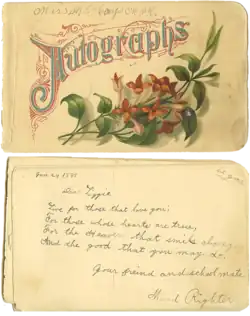 Autographs
Jan 29 1881
Dear Lizzie
Live for those that love you;
For those whose hearts are true,
For the Heaven that smile
And the good that you may do.
Your freind and schoolmate
Righter